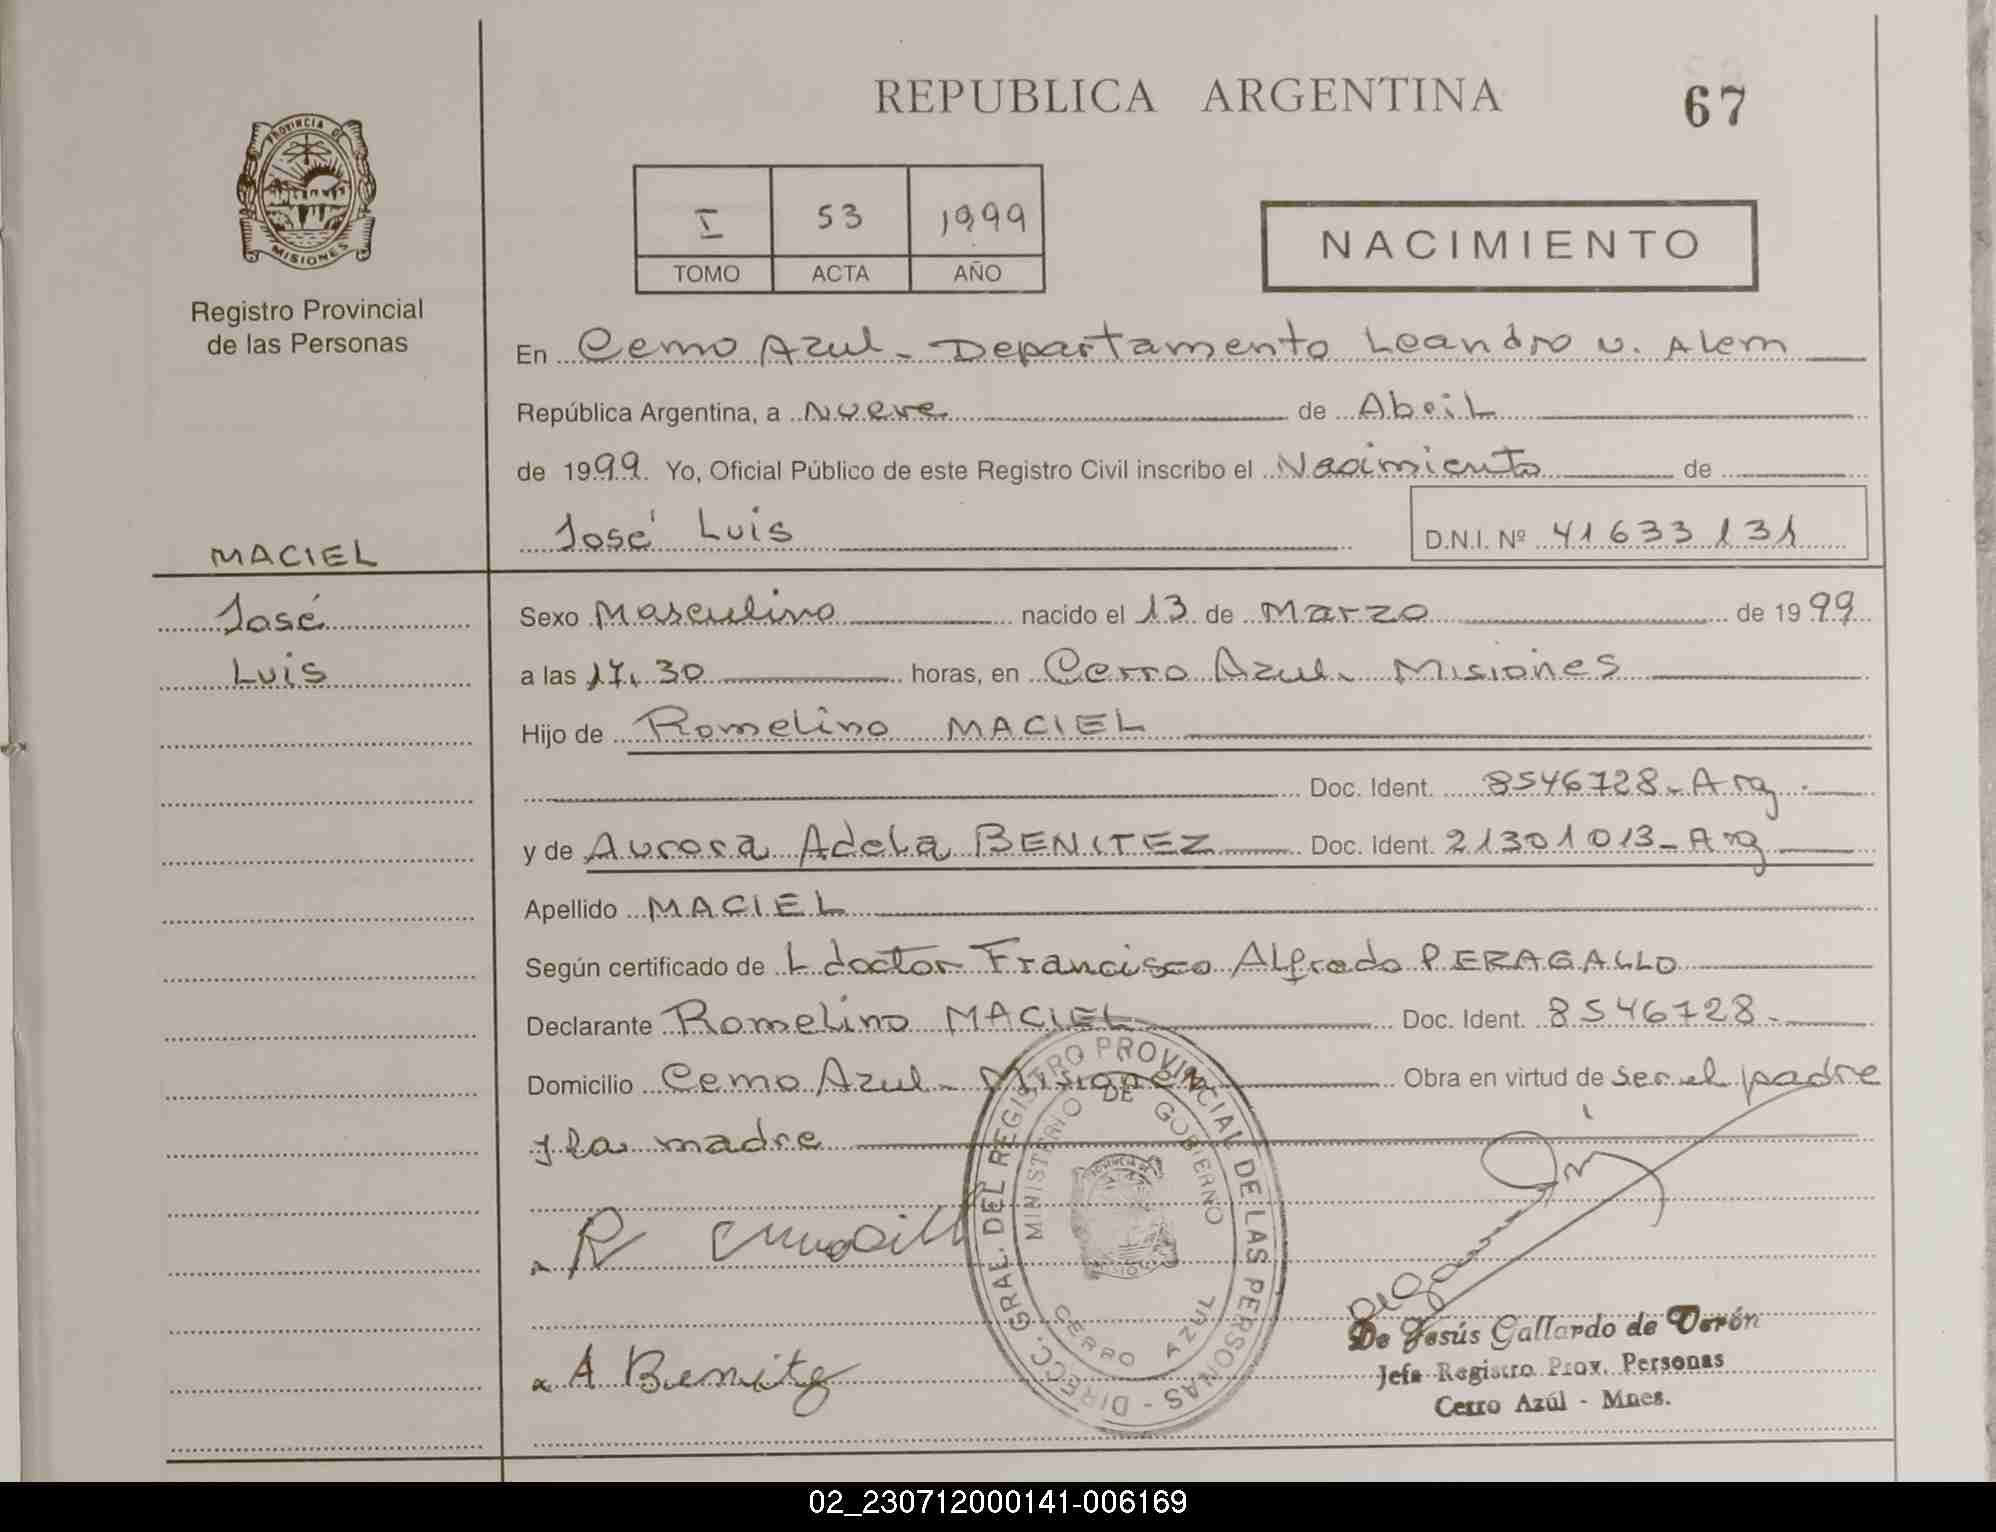 REPUBLICA ARGENTINA
67
PROVINCIA DE
MISIONES
Registro Provincial
de las Personas
I 53 1999
TOMO ACTA AÑO
NACIMIENTO
En Cerro Azul - Departamento Leandro N. Alem
República Argentina, a Nueve de Abril
de 1999. Yo, Oficial Público de este Registro Civil inscribo el Nacimiento de
José Luis D.N.I. Nº 41633131
MACIEL
José
Luis
Sexo Masculino nacido el 13 de Marzo de 1999
a las 17.30 horas, en Cerro Azul - Misiones
Hijo de Romelino MACIEL
Doc. Ident. 8546728 - Arg.
y de Aurora Adela BENITEZ Doc. Ident. 21301013 - Arg
Apellido MACIEL
Según certificado de L doctor Francisco Alfredo PERAGALLO
Declarante Romelino MACIEL Doc. Ident. 8546728.
Domicilio Cerro Azul - Misiones Obra en virtud de ser el padre
y la madre
DIRECC. GRAL. DEL REGISTRO PROVINCIAL DE LAS PERSONAS -
MINISTERIO DE GOBIERNO
CERRO AZUL
x R
x A Benitez
De Jesús Gallardo de Verón
Jefa Registro Prov. Personas
Cerro Azúl - Mnes.
02_230712000141-006169